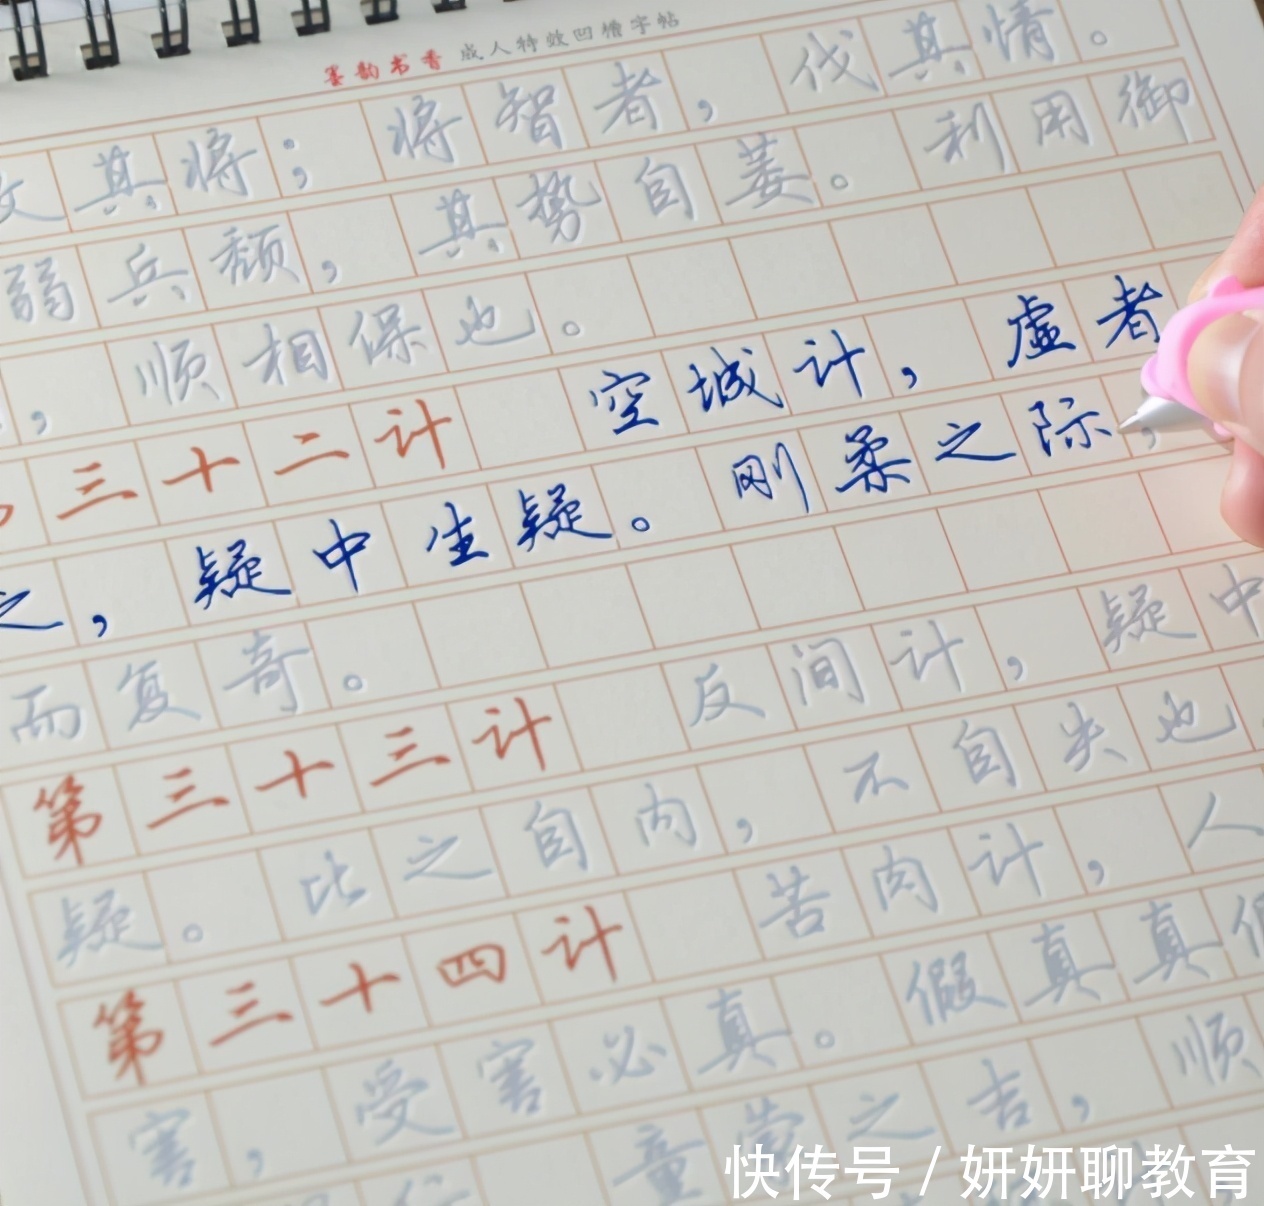 墨韵书香 成人特效凹槽字帖
其将；将智者，伐其情。
弱兵颓，其势自萎。利用御
，顺相保也。
三十二计 空城计，虚者
之，疑中生疑。刚柔之际，
而复奇。
第三十三计 反间计，疑中
疑。比之自内，不自失也
第三十四计 苦肉计，人
害，受害必真。假真真假
童蒙之吉，顺
快传号 / 妍妍聊教育